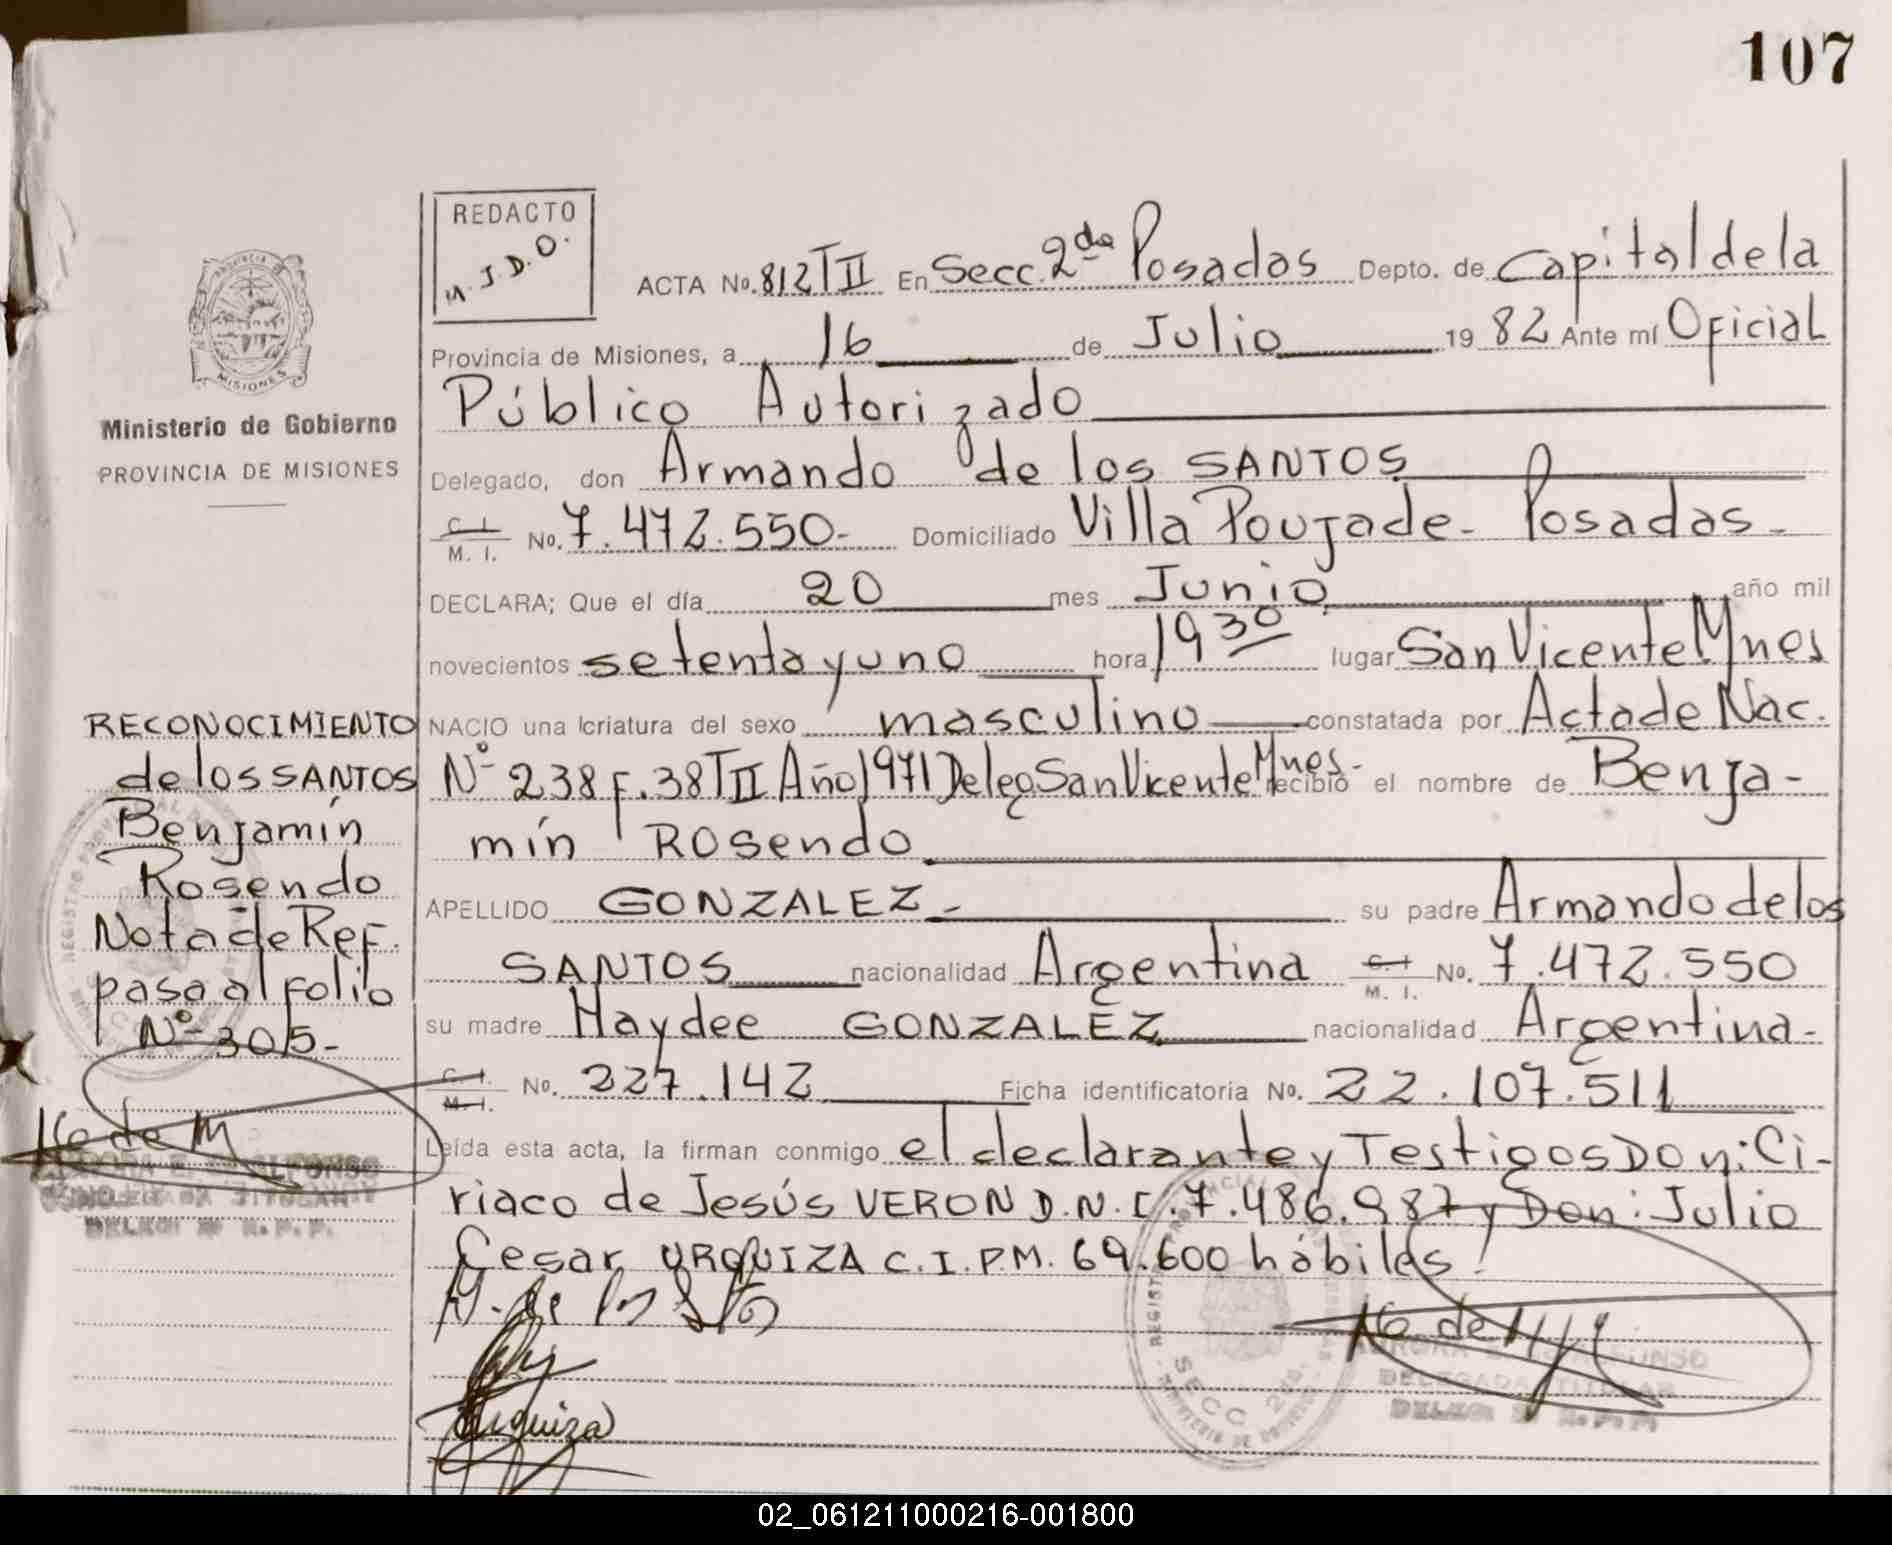 107
REDACTO
M. J. D. O.
ACTA No. 812 TII En Secc. 2da Posadas Depto. de Capital de la
Provincia de Misiones, a 16 de Julio 19 82 Ante mí Oficial
Público Autorizado
Delegado, don Armando de los SANTOS
C. I.
M. I. No. 7.472.550- Domiciliado Villa Poujade- Posadas-
DECLARA; Que el día 20 mes Junio año mil
novecientos setenta y uno hora 1930 lugar San Vicente Mnes
NACIO una criatura del sexo masculino constatada por Acta de Nac.
Nº 238 F. 38 TII Año 1971 Deleg San Vicente Mnes- recibió el nombre de Benja-
mín Rosendo
APELLIDO GONZALEZ- su padre Armando de los
SANTOS nacionalidad Argentina C. I. M. I. No. 7.472.550
su madre Haydee GONZALEZ nacionalidad Argentina-
C. I. M. I. No. 227.142 Ficha identificatoria No. 22.107.511
Leída esta acta, la firman conmigo el declarante y Testigos Don: Ci-
riaco de Jesús VERON D.N.I. 7.486.987 y Don: Julio
Cesar URQUIZA C.I.P.M. 69.600 hábiles.
Urquiza
SECC 2da.
DELEGADA TITULAR
PROVINCIA DE
MISIONES
Ministerio de Gobierno
PROVINCIA DE MISIONES
RECONOCIMIENTO
de los SANTOS
Benjamín
Rosendo
Nota de Ref.
pasa al folio
Nº 305-
02_061211000216-001800